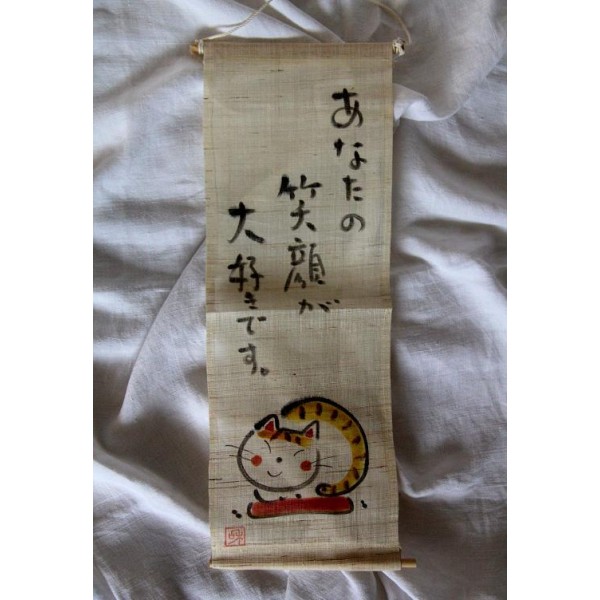 あなたの
笑顔が
大好きです。